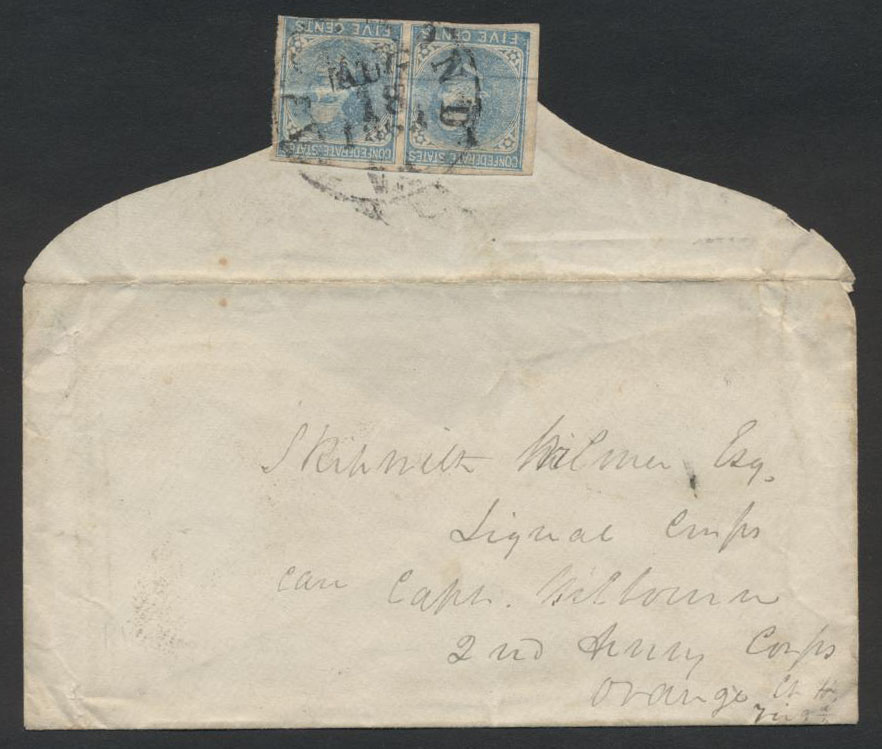 FIVE CENTS FIVE CENTS
AUG
18
CONFEDERATE STATES CONFEDERATE STATES
VA
Skipwith Wilmer Esq.
Signal Corps
care Capt. Wilbourn
2nd Army Corps
Orange Ct Ho
Virga